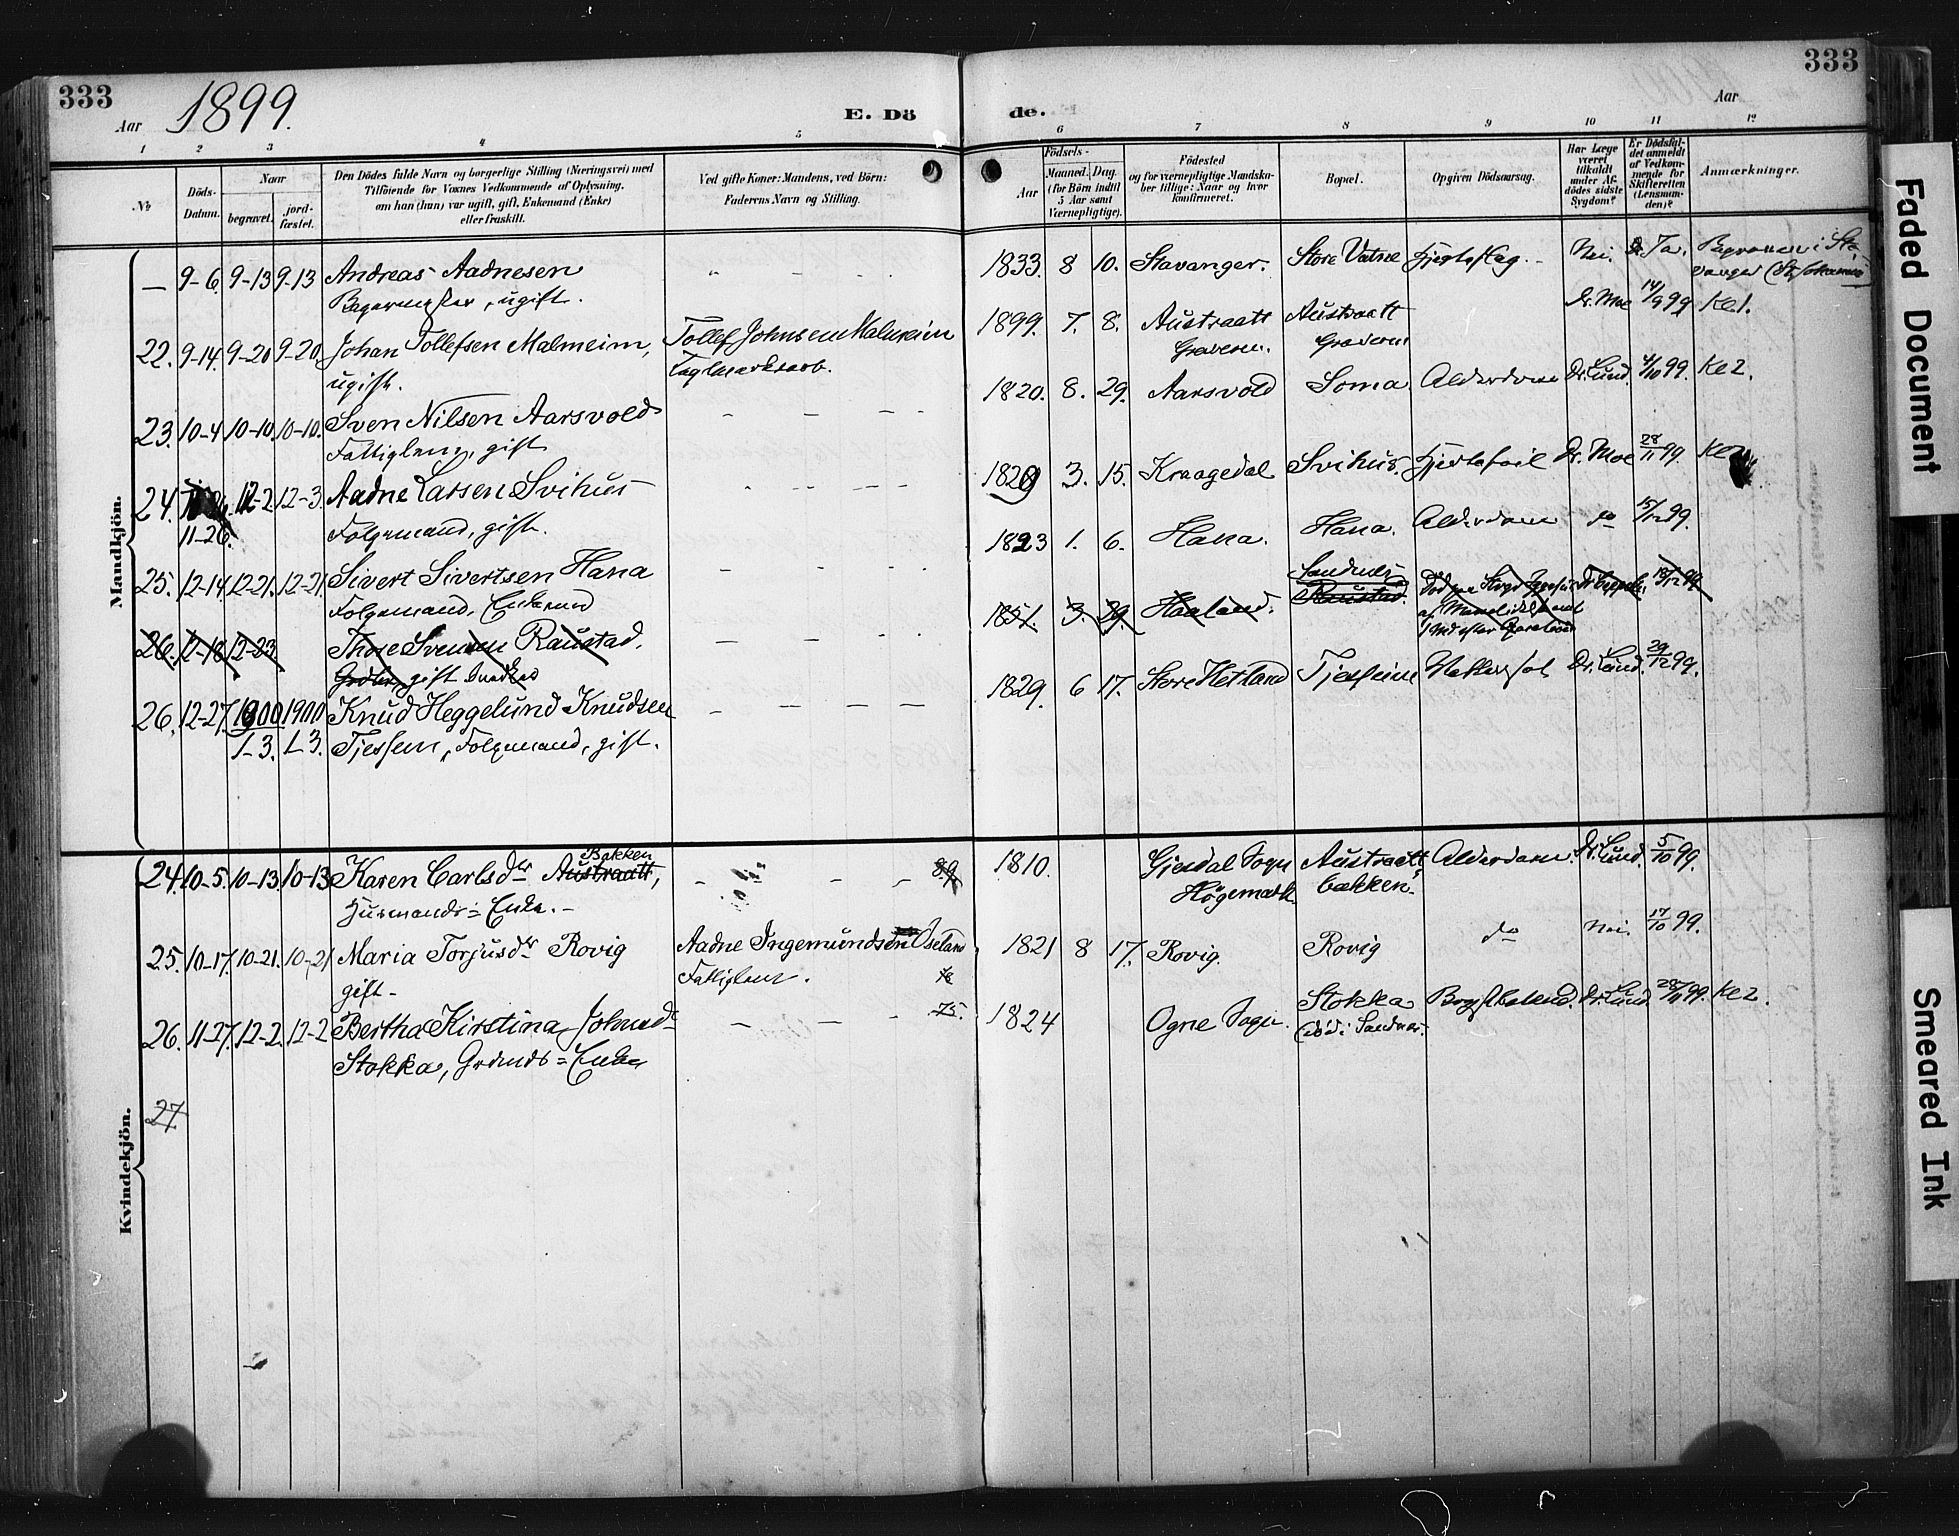 333
Aar 1899.
E. Dö
de.
Aar
333
1 2 3 4 5 6 7 8 9 10 11 12
№
Döds-Datum.
Naar
begravet.
jordfæstet.
Den Dödes fulde Navn og borgerlige Stilling (Næringsvei) med
Tilföiende for Voxnes Vedkommende af Oplysning,
om han (hun) var ugift, gift, Enkemand (Enke)
eller fraskilt.
Ved gifte Koner: Mandens, ved Börn:
Faderens Navn og Stilling.
Födsels-
Aar
Maaned. Dag.
(for Börn indtil
5 Aar samt
Værnepligtige).
Födested
og for værnepligtige Mandskaber tillige: Naar og hvor
konfirmeret.
Bopæl.
Opgiven Dödsaarsag.
Har Læge
været
tilkaldt
under Afdödes sidste
Sygdom?
Er Dödsfaldet anmeldt
af Vedkommende for
Skifteretten
(Lensmanden)?
Anmærkninger.
Mandkjön.
— 9-6. 9-13 9-13 Andreas Aadnesen
Bagermester, ugift.
1833. 8 10. Stavanger. Store Vatne Hjerteslag. Nei. Ja. Begraven i Stavanger
22. 9-14. 9-20 9-20. Johan Tollefsen Malmeim, Tollef Johnsen Malmeim
ugift. Teglverksarb.
1899. 7. 8. Austraatt Austraatt Dr. Moe 14/9 99 Ke 1.
Graveren. Graveren
23. 10-4. 10-10. 10-10. Sven Nilsen Aarsvold
Fattiglem, gift
1820. 8. 29. Aarsvold Soma Alderdom Dr. Lund. 4/10 99. Ke 2.
24. 12-2. 12-3. Aadne Larsen Svihus
11-26. Folgemand, gift.
1820 3. 15. Kraagedal Svihus. Hjertefeil Dr. Moe 28/11 99. Ke
25. 12-14. 12-21. 12-21. Sivert Sivertsen Hana
Folgemand, Enkemd
1823 1. 6. Hana. Hana. Alderdom do 15/12 99.
26. 12-18. 12-23 Thore Svensen Raustad.
Grdbr. gift
1851. 3. 29. Haaland. Sandnes
Raustad.
26. 12-27. 1900 1900 Knud Heggelund Knudsen
1-3. 1-3. Tjessem, Folgemand, gift.
1829. 6 17. Store Hetland Tjessem Dr. Lund. 29/12 99.
Kvindekjön.
24. 10-5. 10-13. 10-13 Karen Carlsdr Austraatt,
Bakken
Husmands=Enke.
89
1810. Gjesdal Sogn Austraatt Alderdom. Dr. Lund. 5/10 99.
Högemark. bakken.
25. 10-17. 10-21. 10-21 Maria Torjusdr Rovig Aadne Ingemundsen Oseland
gift Fattiglem.
1821 8 17. Rovig. Rovig do Nei. 17/10 99.
26. 11-27. 12-2. 12-2 Bertha Kirstina Johnsdr
Stokka, Grdmds=Enke
75.
1824 Ogne Sogn. Stokka Brystbetænd. Dr. Lund. 28/11 99. Ke 2.
(död i Sandnes.
27.
Faded Document
Smeared Ink